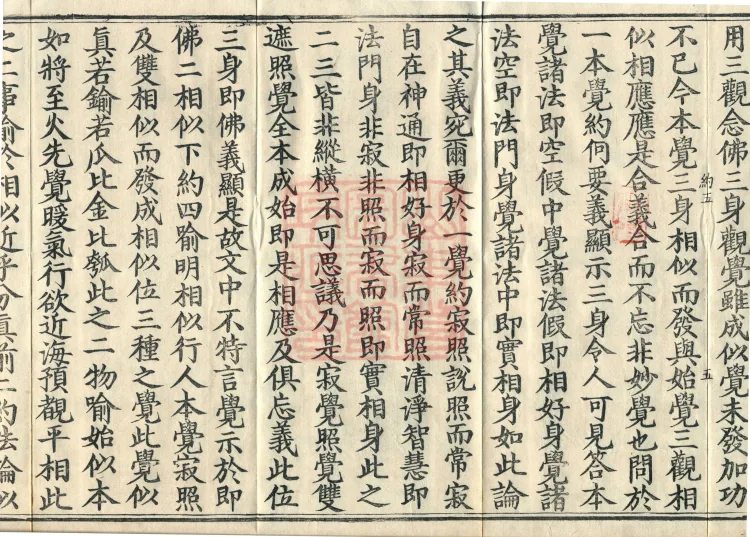 用三觀念佛三身觀覺雖成似覺未發加功
不已今本覺三身相似而發與始覺三觀相
似相應應是合義合而不忘非妙覺也問於
一本覺約何要義顯示三身令人可見答本
覺諸法即空假中覺諸法假即相好身覺諸
法空即法門身覺諸法中即實相身如此論
之其義宛爾更於一覺約寂照說照而常寂
自在神通即相好身寂而常照清淨智慧即
法門身非寂非照而寂而照即實相身此之
二三皆非縱橫不可思議乃是寂覺照覺雙
遮照覺全本成始即是相應及俱忘義此位
三身即佛義顯是故文中不特言覺示於即
佛二相似下約四喻明相似行人本覺寂照
及雙相似而發成相似位三種之覺此覺似
真若鍮若瓜比金比瓠此之二物喻始似本
如將至火先覺暖氣行欲近海預覩平相此
之二事喻於相似近乎分真前二約法論似
約五
五